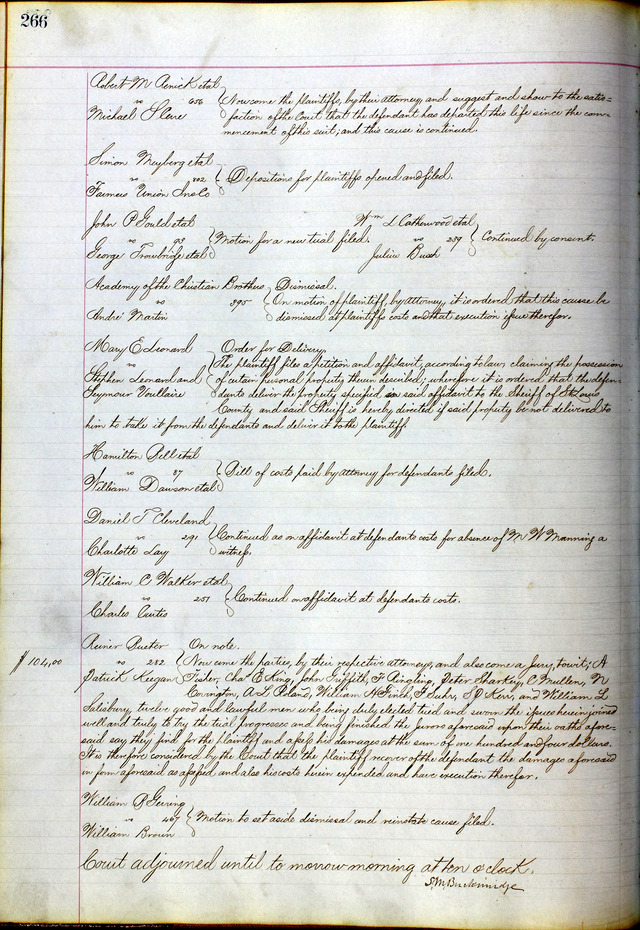 266
Robert M Renick etal
vs 656
Michael
Now come the plaintiffs, by their attorney, and suggest and show to the satis=
faction of the Court that the defendant has departed this life since the com-
mencement of this suit; and this cause is continued.
Simon Meyberg etal
vs
Farmers Union Ins Co
Depositions for plaintiffs opened and filed.
John P Gould etal
vs 93
George Trowbridge etal
Motion for a new trial filed.
Wm L Catherwood etal
vs 239
Julius Bush
Continued by consent.
Academy of the Christian Brothers
vs 395
André Martin
Dismissal.
On motion of plaintiff, by attorney, it is ordered that this cause be
dismissed at plaintiffs costs and that execution issue therefor.
Mary E Leonard
vs
Stephen Leonard and
Seymour Voullaire
Order for Delivery.
The plaintiff files a petition and affidavit, according to law, claiming the possession
of certain personal property therein described; wherefore it is ordered that the defen-
dants deliver the property specified in said affidavit to the Sheriff of St Louis
County and said Sheriff is hereby directed if said property be not delivered to
him to take it from the defendants and deliver it to the plaintiff
Hamilton Bell etal
vs 87
William Dawson etal
Bill of costs paid by attorney for defendants filed.
Daniel T Cleveland
vs 291
Charlotte Lay
Continued as on affidavit at defendants costs for absence of M W Manning a
witness.
William C Walker etal
vs 251
Charles Curtis
Continued on affidavit at defendants costs.
Reiner
vs 282
Patrick Keegan
On note.
$104,00
Now come the parties, by their respective attorneys, and also come a Jury, towit; A
Tisler, Chas E King, John Griffith, F Ringling, Peter Sharkey, C Mullen, N
Covington, A L Poland, William H Finch, F Suhr, S D Kerr, and William L
Salisbury, twelve good and lawful men who being duly elected tried and sworn the issues herein joined
well and truly to try the trial progresses and being finished the jurors aforesaid upon their oaths afore-
said say they find for the plaintiff and assess his damages at the sum of one hundred and four dollars.
It is therefore considered by the Court that the plaintiff recover of the defendant the damages aforesaid
in form aforesaid as assessed and also his costs herein expended and have execution therefor.
William R
vs 467
William Brown
Motion to set aside dismissal and reinstate cause filed.
Court adjourned until to morrow morning at ten o'clock.
S. M. Breckinridge